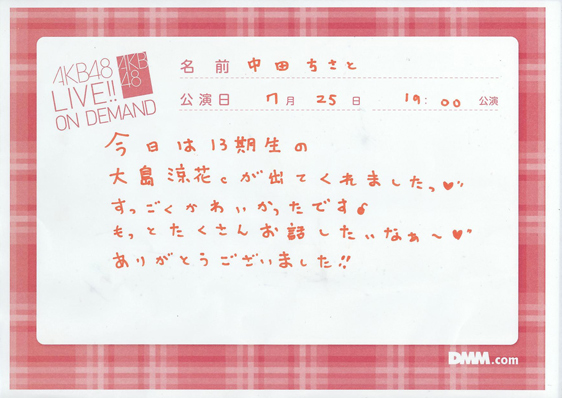 AKB48
LIVE!!
ON DEMAND
AKB
48
名前 中田ちさと
公演日 7月 25日 19:00 公演
今日は13期生の
大島涼花cが出てくれましたっ♥"
すっごくかわいかったです
もっとたくさんお話したいなぁ〜♥"
ありがとうございました!!
DMM.com